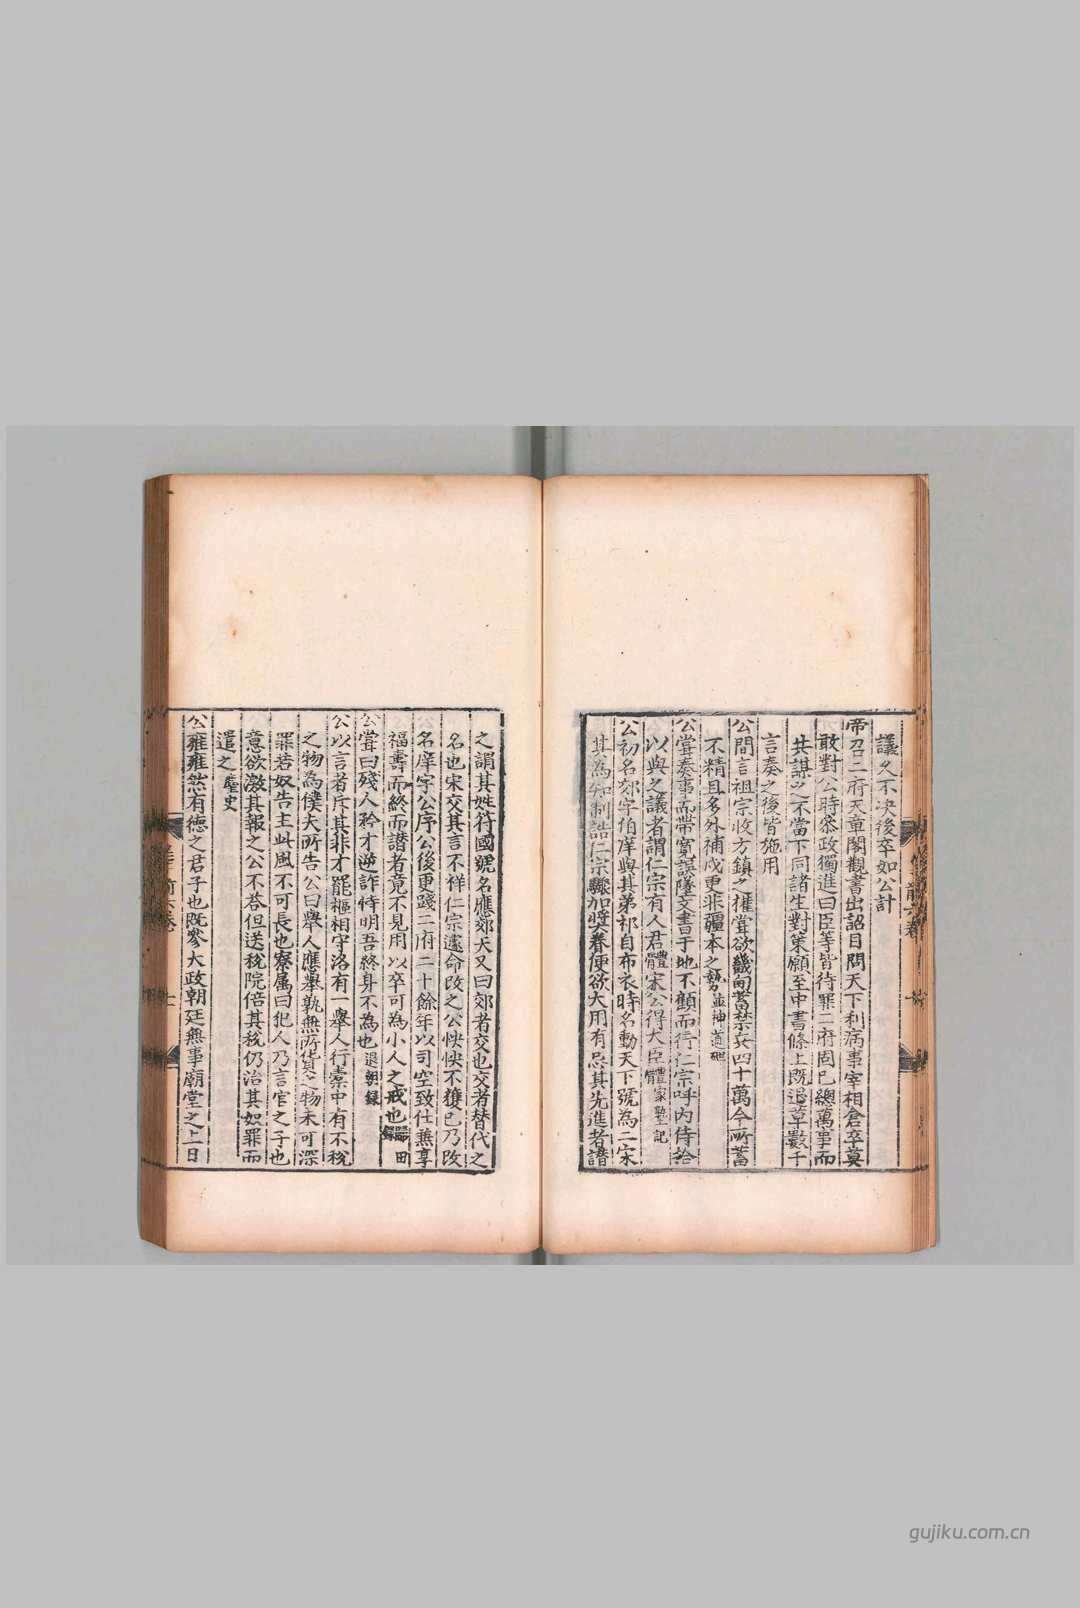 議久不決後卒如公計
帝召二府天章閣觀書出詔目問天下利病事宰相倉卒莫
敢對公時叅政獨進曰臣等皆待罪二府固已總萬事而
共謀之不當下同諸生對策願至中書條上既退草數千
言奏之後皆施用
公間言祖宗收方鎮之權嘗欲畿甸蓄禁兵四十萬今所蓄
不精且多外補戍更非疆本之勢並神道碑
公嘗奏事而帶窄誤墜文書于地不顧而行仁宗呼内侍拾
以與之議者謂仁宗有人君體宋公得大臣體家塾記
公初名郊字伯庠與其弟祁自布衣時名動天下號為二宋
其為知制誥仁宗驟加奬眷便欲大用有忌其先進者譖
之謂其姓符國號名應郊天又曰郊者交也交者替代之
名也宋交其言不祥仁宗遽命改之公怏怏不獲已乃改
名庠字公序公後更踐二府二十餘年以司空致仕兼享
福壽而終而譖者竟不見用以卒可為小人之戒也歸田錄
公嘗曰殘人矜才逆詐恃明吾終身不為也退朝録
公以言者斥其非才罷樞相守洛有一舉人行橐中有不稅
之物為僕夫所告公曰舉人應舉孰無所貨之物未可深
罪若奴告主此風不可長也寮属曰犯人乃言官之子也
意欲激其報之公不荅但送稅院倍其稅仍治其奴罪而
遣之麈史
公雍雍然有德之君子也既參大政朝廷無事廟堂之上日
gujiku.com.cn